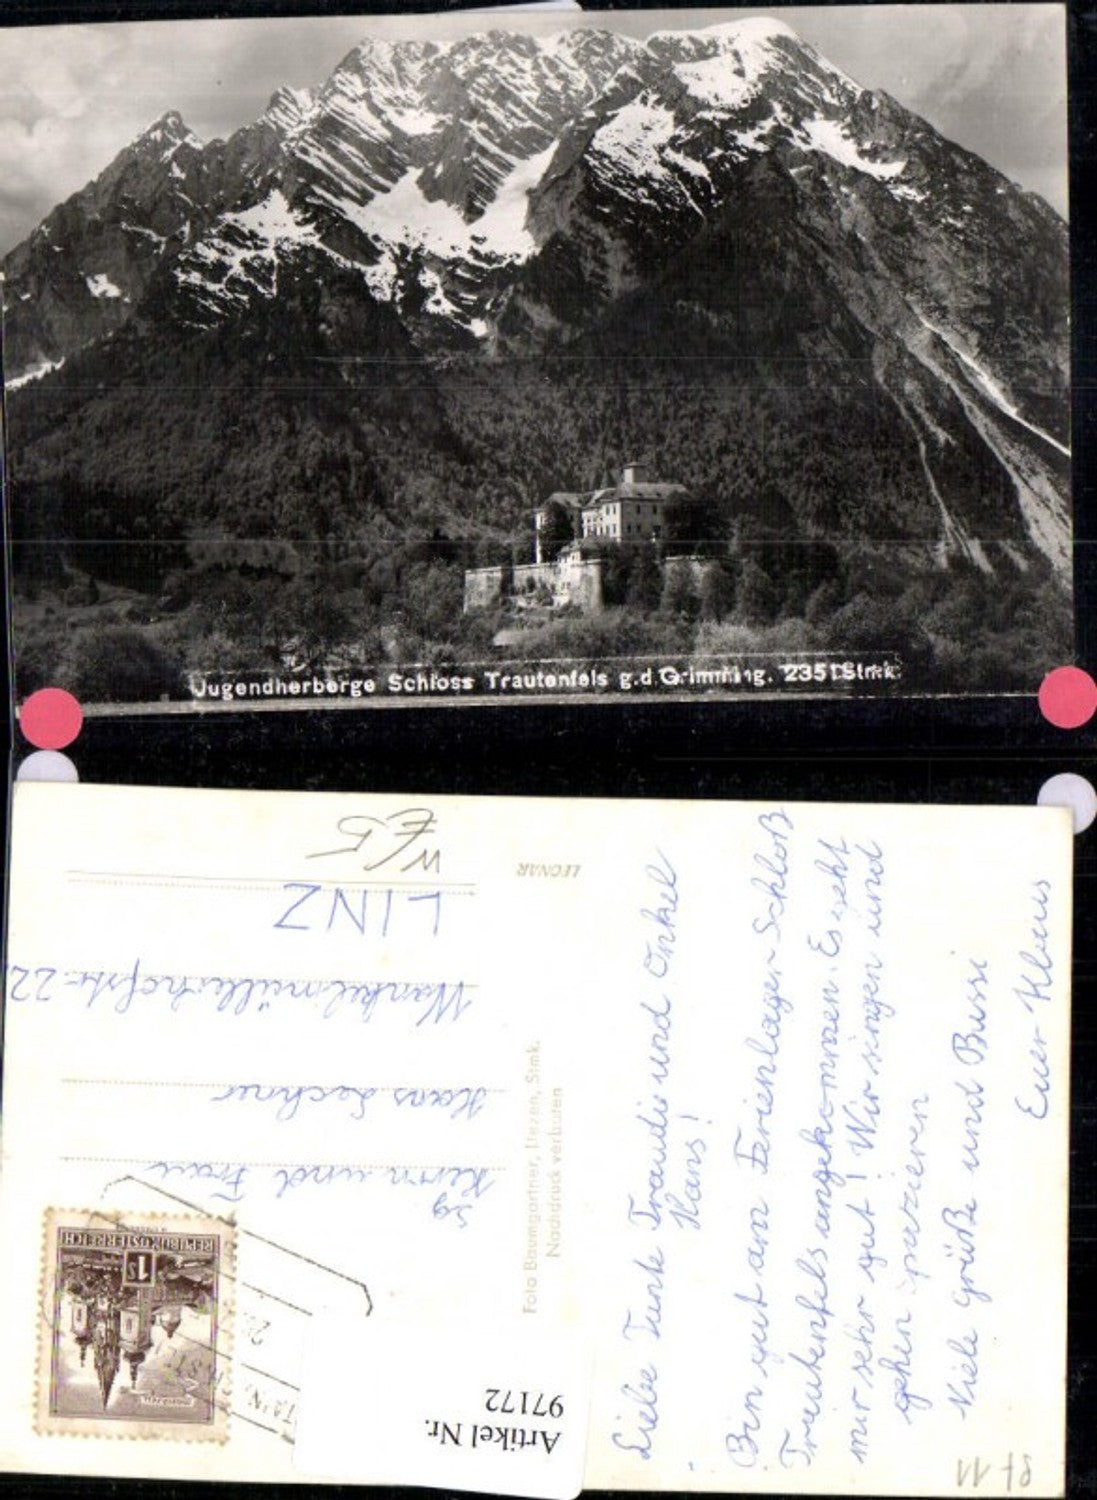 Jugendherberge Schloss Trautenfels g.d.Grimming. 2351 Stmk.
W€5
LEONAR
LINZ
Wankelmüllerhofstr. 22
Haas Lechner
Herrn und Frau
Sg
Foto Baumgartner, Irezen, Stmk.
Nachdruck verboten
REPUBLIK ÖSTERREICH
1S
Artikel Nr.
97172
Liebe Tante Traudi und Onkel
Hans!
Bin gut am Ferienlager Schloß
Trautenfels angekommen. Es geht
mir sehr gut! Wir singen und
gehen spazieren
Viele Grüße und Bussi
Euer Klaus